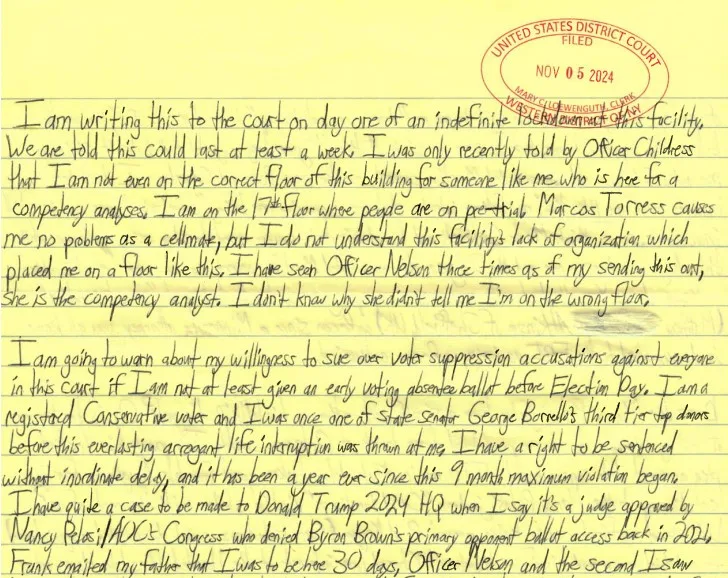 UNITED STATES DISTRICT COURT
FILED
NOV 05 2024
MARY C. LOEWENGUTH, CLERK
WESTERN DISTRICT OF NY
I am writing this to the court on day one of an indefinite lockdown at this facility.
We are told this could last at least a week. I was only recently told by Officer Childress
that I am not even on the correct floor of this building for someone like me who is here for a
competency analyses. I am on the 17th floor where people are on pre-trial. Marcos Torress causes
me no problems as a cellmate, but I do not understand this facility's lack of organization which
placed me on a floor like this. I have seen Officer Nelson three times as of my sending this out,
she is the competency analyst. I don't know why she didn't tell me I'm on the wrong floor.
I am going to warn about my willingness to sue over voter suppression accusations against everyone
in this court if I am not at least given an early voting absentee ballot before Election Day. I am a
registered Conservative voter and I was once one of state senator George Borrello's third tier top donors
before this everlasting arrogant life interruption was thrown at me. I have a right to be sentenced
without inordinate delay, and it has been a year ever since this 9 month maximum violation began.
I have quite a case to be made to Donald Trump 2024 HQ when I say it's a judge approved by
Nancy Pelosi/AOC's Congress who denied Byron Brown's primary opponent ballot access back in 2021.
Frank emailed my father that I was to be here 30 days, Officer Nelson and the second I saw